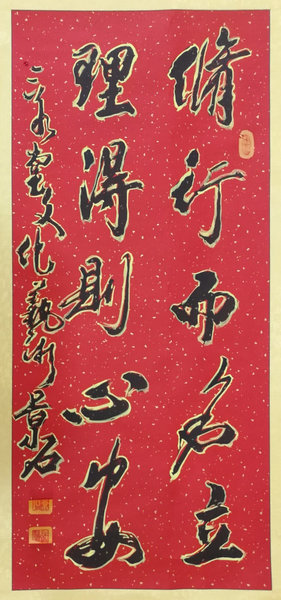 脩行而名立
理得則心安
堂文化藝術景石